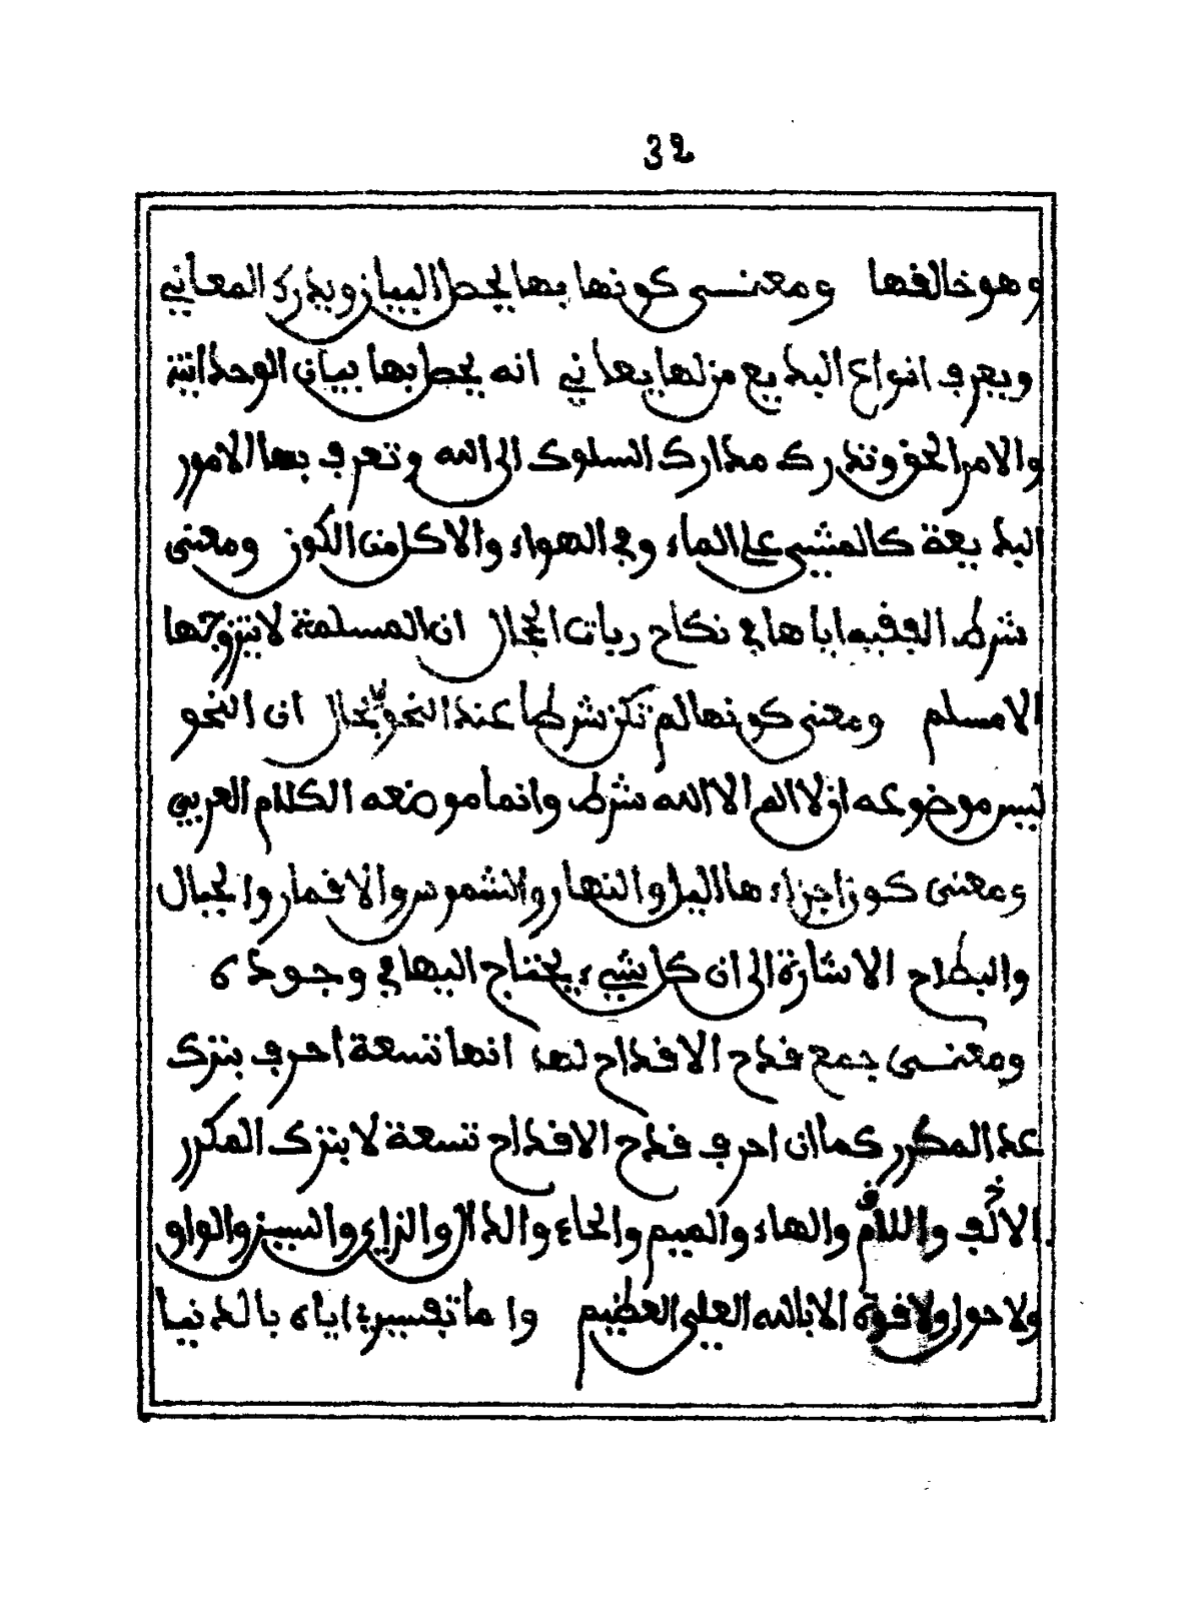 32
وهو خالفها ومعنى كونها بها يحصل البيان ويدرك المعاني
ويعرف انواع البديع من لها يعاني انه يحصل بها بيان الوحدانية
والامر الحق وتدرك مدارك السلوك الى الله وتعرف بها الامور
البديعة كالمشي على الماء وفي الهواء والاكل من الكون ومعنى
شرط الفقيه اياها في نكاح ربات الحجال ان المسلمة لا يتزوجها
الا مسلم ومعنى كونها لم تكن شرطا عند النحوي بحال ان النحو
ليس موضوعه ان لا اله الا الله شرط وانما موضعه الكلام العربي
ومعنى كون اجزاءها الليل والنهار والشموس والاقمار والجبال
والبطاح الاشارة الى ان كل شيء يحتاج اليها في وجوده
ومعنى جمع قدح الاقداح لها انها تسعة احرف بترك
عد المكرر كما ان احرف قدح الاقداح تسعة لا بترك المكرر
الالف واللام والهاء والميم والحاء والدال والزاي والسين والواو
ولا حول ولا قوة الا بالله العلي العظيم واما تفسيري اياه بالدنيا